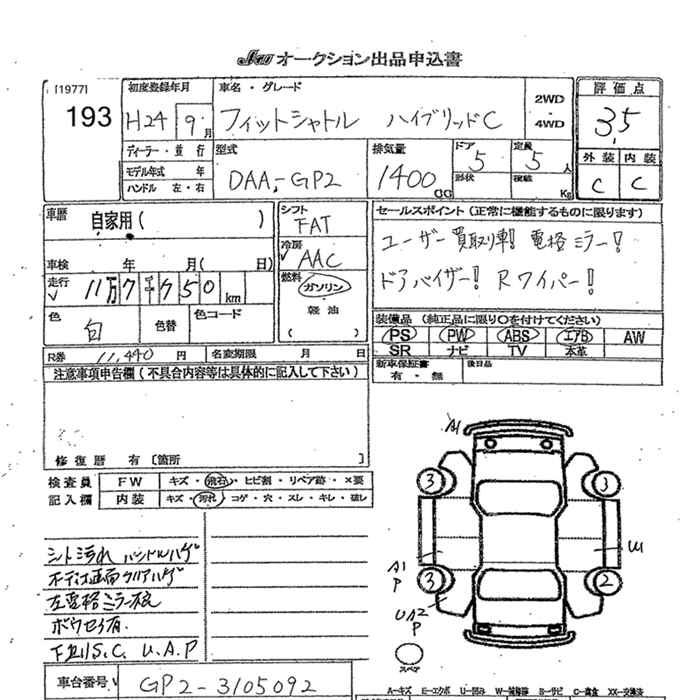 JU オークション出品申込書
[1977]
193
初度登録年月
H24 9月
車名・グレード
フィットシャトル ハイブリッドC
2WD
4WD
評価点
3.5
外装 内装
C C
ディーラー・並行
モデル年式 年
ハンドル 左・右
型式
DAA-GP2
排気量
1400 CC
ドア 5
定員 5人
形状
積載 Kg
車歴
自家用( )
車検 年 月( 日)
走行 11万7千750km
色 白
色替
色コード
シフト
FAT
冷房
AAC
燃料
ガソリン
軽油
( )
セールスポイント(正常に機能するものに限ります)
ユーザー買取り車! 電格ミラー!
ドアバイザー! Rワイパー!
装備品 (純正品に限り○を付けてください)
PS PW ABS エアB AW
SR ナビ TV 本革
新車保証書
有・無
後日品
R券 11,440 円
名変期限 月 日
注意事項申告欄(不具合内容等は具体的に記入して下さい)
修復歴 有〔箇所 〕
検査員
記入欄
FW キズ・飛石・ヒビ割・リペア跡・×要
内装 キズ・汚れ・コゲ・穴・スレ・キレ・破レ
シート汚れ ハンドルハゲ
左電格ミラー
ボウセイ有
下廻りS.C U.A.P
A1
3 3
A1
P
3 2
U1
UA2
P
スペア
車台番号
GP2-3105092
A-キズ E-エクボ U-凹み W-補修跡 B-サビ C-腐食 XX-交換済